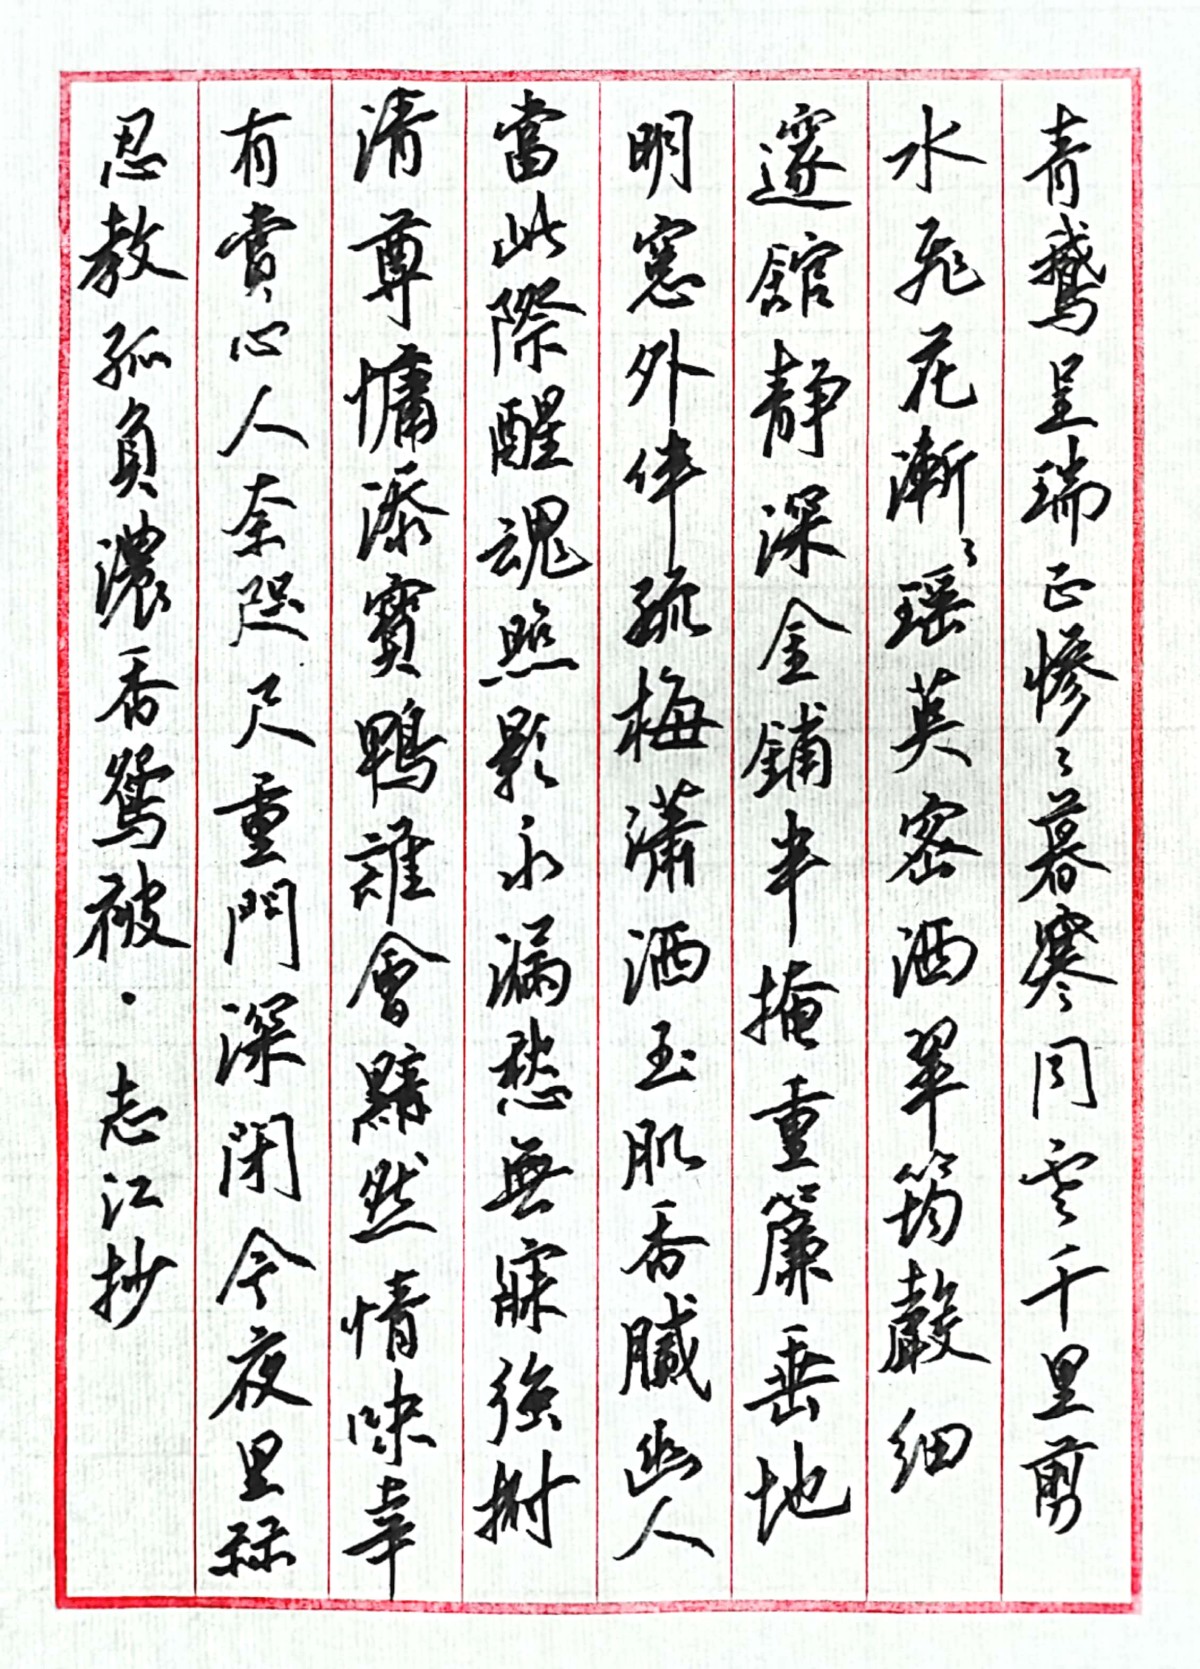 青鵝呈瑞正慘〻暮寒同雲千里剪
水飛花漸〻瑤英密洒翠筠聲細
邃館靜深金鋪半掩重簾垂地
明窓外伴疏梅瀟洒玉肌香膩幽人
當此際醒魂照影永漏愁無寐強拊
清尊慵添寶鴨誰會黯然情味幸
有賞心人奈咫尺重門深閉今夜里
忍教孤負濃香鴛被·志江抄